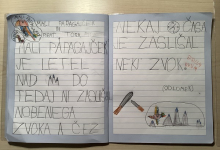 MALI PAPAGAJČEK
JE LETEL
NAD DO
TEDAJ NI ZASLIŠAL
NOBENEGA
ZVOKA A ČEZ
NEKAJ ČASA
JE ZASLIŠAL
NEKI ZVOK